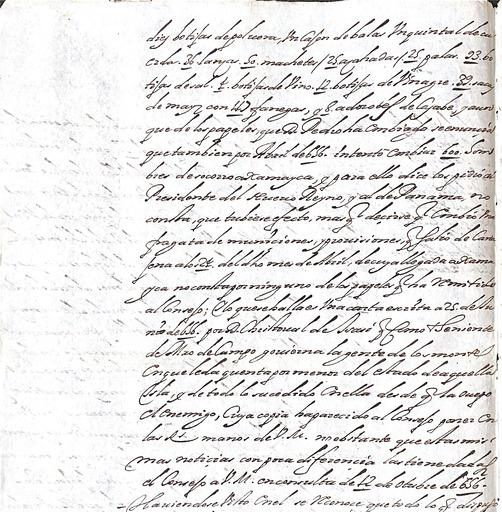 diez botijas de poluora, Un cajon de balas Un quintal de cu
erda. 36 lanças. 50. machetes / 25 açahadas / 25 palas. 23. bo
tijas de sal. botijas de Vino. 12. botijas de Vinagre. 32. sacos
de mayz con 47 fanegas, y 8. adobes de Cazabe, y aun
que de los papeles, que D. Pedro ha Conbiado se enuncia
que tambien por Abril de 656. intentó Conbiar 600. hom
bres de socorro a Xamayca, y para ello dize los pidio al
Presidente del Nueuo Reyno, y al de Panama, no
consta, que tubiese efecto, mas q decirse q Conbio Una
fragata de municiones, y prouisiones, q salio de Car
jena a los del dho mes de Abril, de cuya llegada a Xama
yca no consta por ninguno de los papeles q ha Remitido
al Consejo; lo que se halla es Una carta escrita a 25. de Ju
nio de 656. por D. Cristoual de q como teniente
de Mro de Campo gouierna la gente de los montes
En que le da quenta por menor del estado de aquella
Isla, y de todo lo sucedido En ella desde q la ocupo
el Enemigo, Cuya copia ha parecido al Consejo poner En
las Rs. manos de V.M. no obstante que estas mis
mas noticias con poca diferencia las tiene dadas
el Consejo a V.M. en consulta de 12 de Otubre de 656
Hauiendose Visto En el se Reconoce que todo lo q dispuso